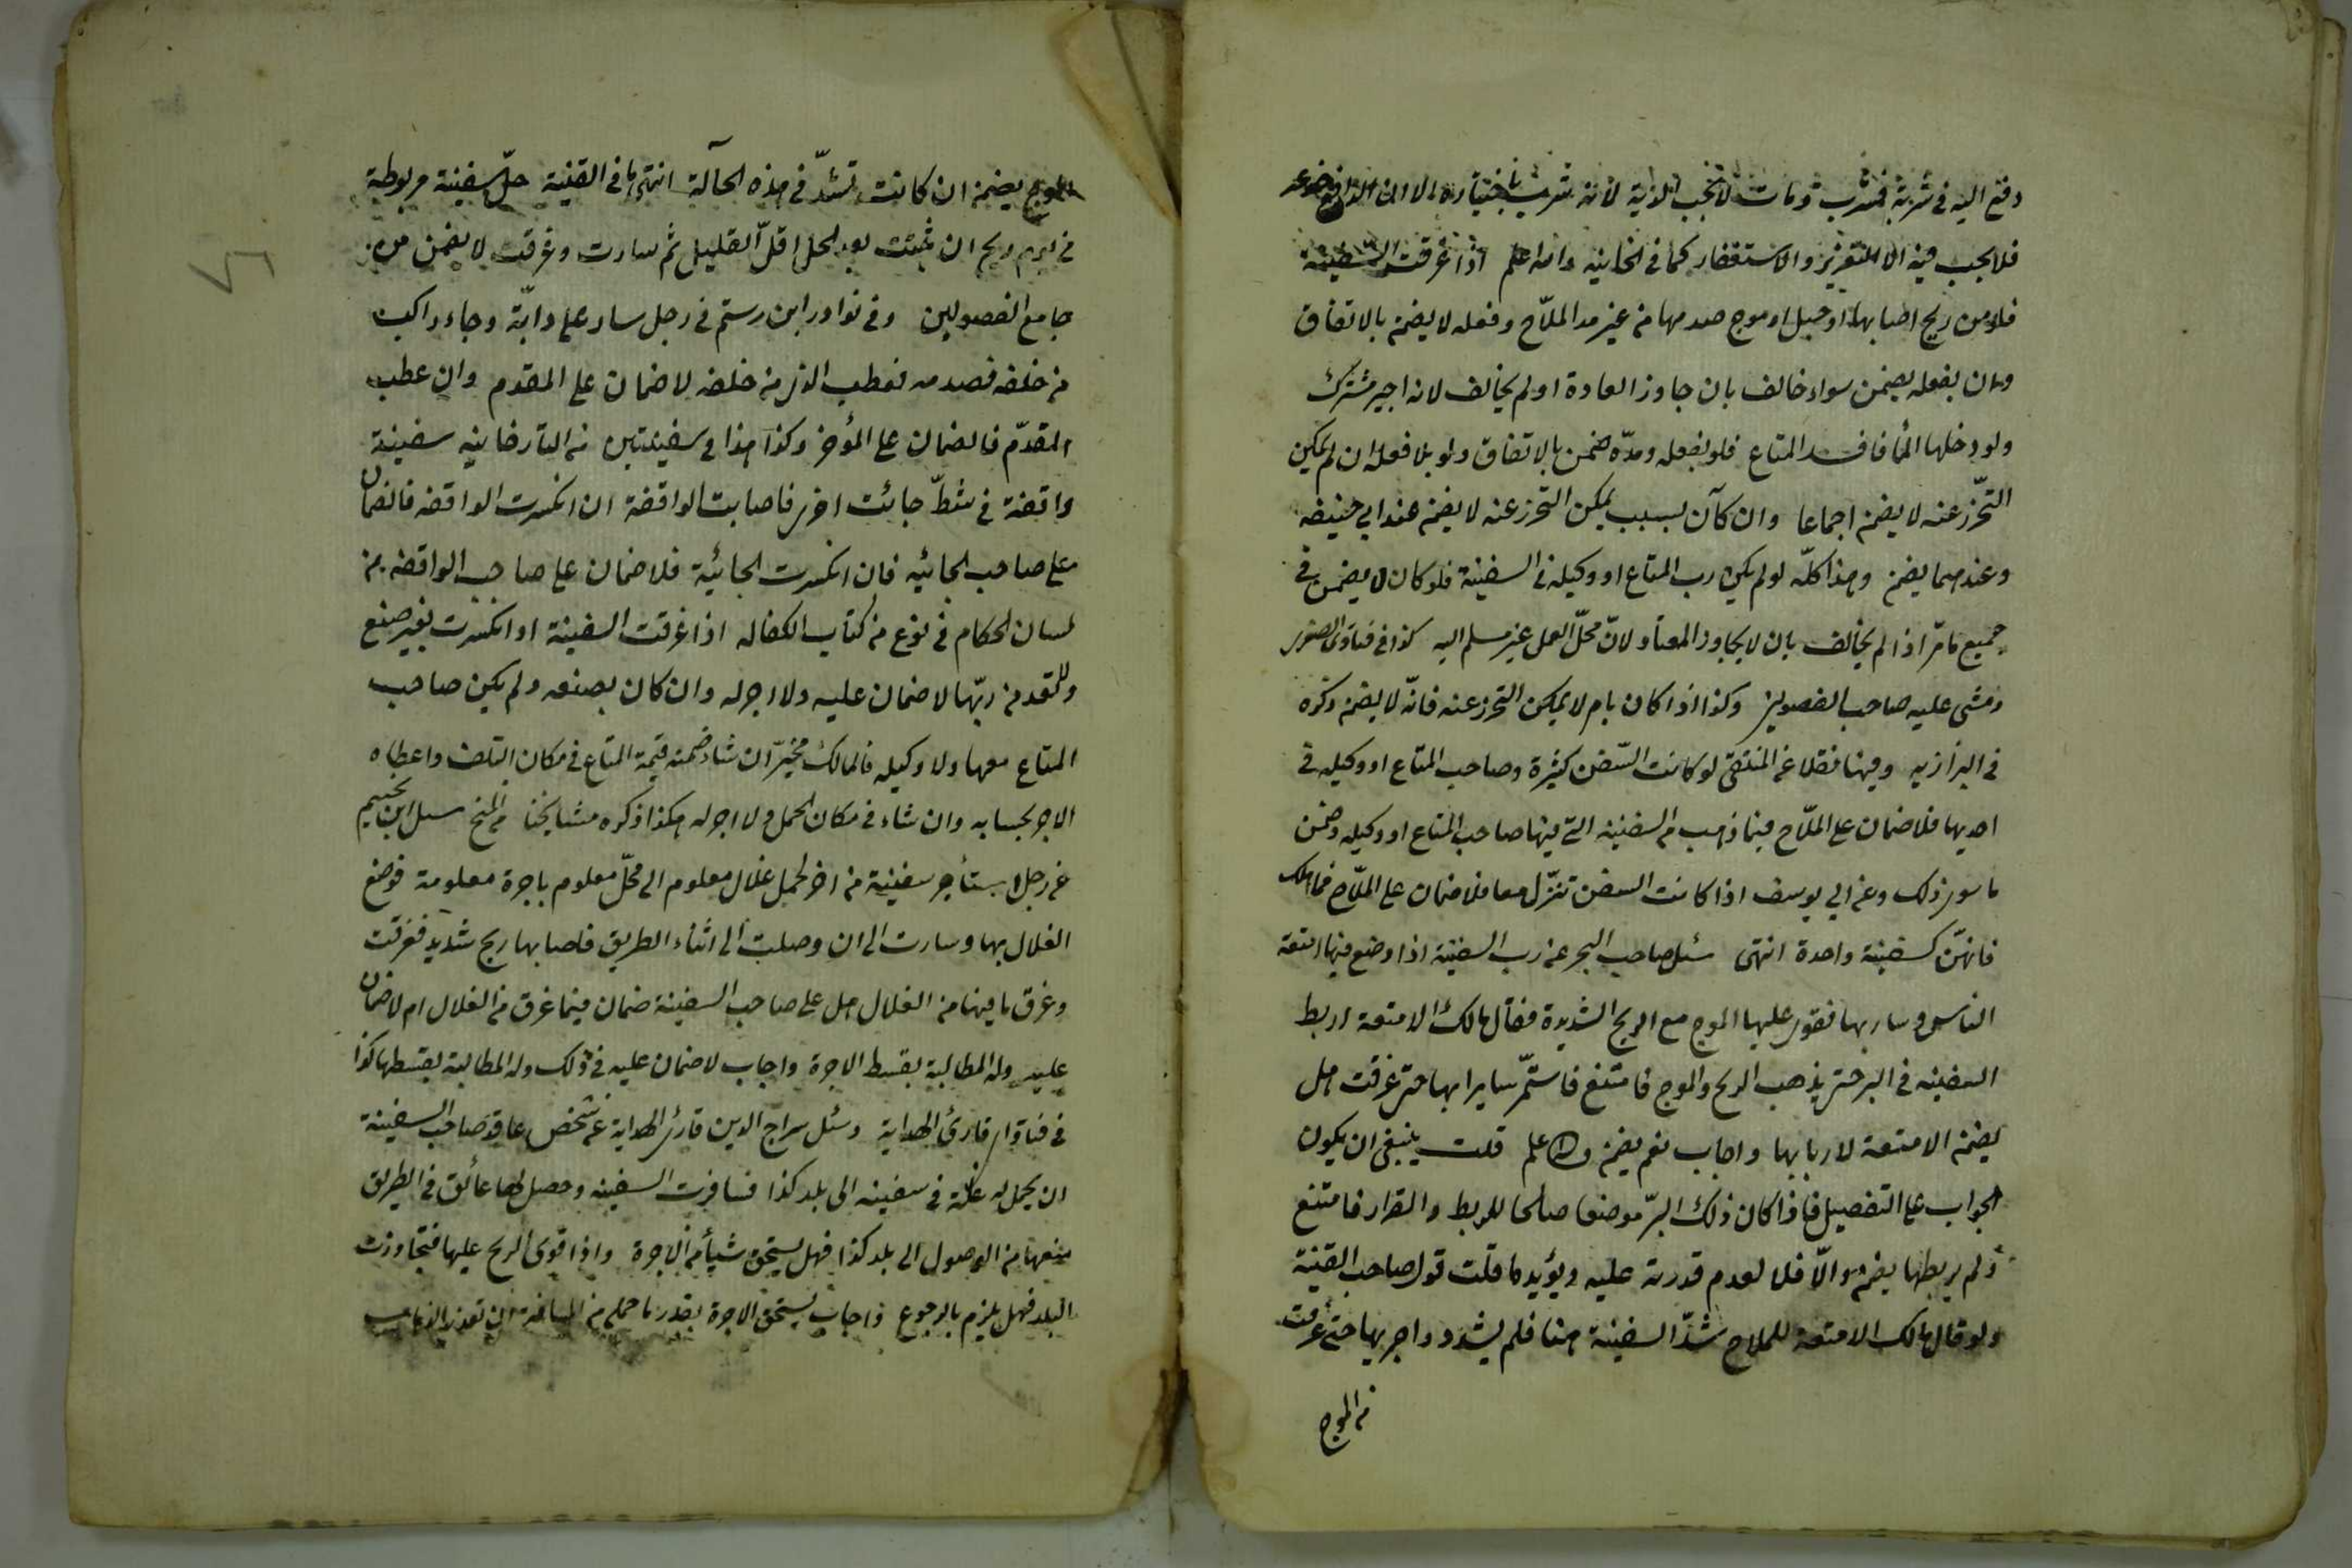 دفع اليه فى شربة فشرب ومات لا تجب الدية لانه شرب باختياره الا ان الدافع خدعه
فلا يجب فيه الا التعزير والاستغفار كما فى الخانية والله اعلم اذا غرقت السفينة
فلو من ريح اصابها او جبل او موج صدمها من غير مد الملاح وفعله لا يضمن بالاتفاق
وان بفعله يضمن سواء خالف بان جاوز العادة او لم يخالف لانه اجير مشترك
ولو دخلها الماء فافسد المتاع فلو بفعله ومدّه ضمن بالاتفاق ولو بلا فعله ان لم يمكن
التحرّز عنه لا يضمن اجماعا وان كان بسبب يمكن التحرز عنه لا يضمن عند ابي حنيفة
وعندهما يضمن وهذا كلّه لو لم يكن رب المتاع او وكيله فى السفينة فلو كان لا يضمن فى
جميع ما مرّ اذا لم يخالف بان لا يجاوز المعتاد لانّ محلّ العمل غير مسلم اليه كذا فى فتاوى الصغرى
ومشى عليه صاحب الفصولين وكذا اذا كان بامر لا يمكن التحرز عنه فانّه لا يضمن ذكره
فى البزازيه وفيها نقلا عن المنتقى لو كانت السّفن كثيرة وصاحب المتاع او وكيله فى
احديها فلا ضمان على الملّاح فيما ذهب من السفينة التى فيها صاحب المتاع او وكيله وضمن
ما سوى ذلك وعن ابي يوسف اذا كانت السفن تنزّل معا فلا ضمان على الملّاح فما هلك
فانهنّ كسفينة واحدة انتهى سئل صاحب البحر عن رب السفينة اذا وضع فيها امتعة
الناس وسار بها فقوى عليها الموج مع الريح الشديدة فقال مالك الامتعة اربط
السفينه فى البر حتى يذهب الريح والموج فامتنع فاستمّر سايرا بها حتى غرقت هل
يضمن الامتعة لاربابها واجاب نعم يضمن والله اعلم قلت ينبغى ان يكون
الجواب على التفصيل فاذا كان ذلك البرّ موضعا صالحا للربط والقرار فامتنع
ولم يربطها يضمن والّا فلا لعدم قدرته عليه ويؤيد ما قلت قول صاحب القنية
ولو قال مالك الامتعة للملاح شدّ السفينة هنا فلم يشدد واجريها حتى غرقت
من الموج
الموج يضمن ان كانت تشدّ فى هذه الحالة انتهى ما فى القنية حلّ سفينة مربوطة
فى يوم ريح ان ثبتت بعد الحل اقلّ القليل ثم سارت وغرقت لا يضمن من
جامع الفصولين وفى نوادر ابن رستم فى رجل سار على دابّة وجاء راكب
من خلفه فصدمه فعطب الذى من خلفه لا ضمان على المقدم وان عطب
المقدّم فالضمان على المؤخر وكذا هذا فى سفينتين من التارخانيه سفينة
واقفة فى شطّ جائت اخرى فاصابت الواقفة ان انكسرت الواقفه فالضمان
على صاحب الجائيه فان انكسرت الجائية فلا ضمان على صاحب الواقفه من
لسان الحكام فى نوع من كتاب الكفاله اذا غرقت السفينة او انكسرت بغير صنع
وللتعد من ربّها لا ضمان عليه ولا اجر له وان كان بصنعه ولم يكن صاحب
المتاع معها ولا وكيله فالمالك مخيّر ان شاء ضمنه قيمة المتاع فى مكان التلف واعطاه
الاجر بحسابه وان شاء فى مكان الحمل ولا اجر له هكذا ذكره مشايخنا من المنح سئل ابن نجيم
عن رجل استأجر سفينة من اخر لحمل غلال معلوم الى محلّ معلوم باجرة معلومة فوضع
الغلال بها وسارت الى ان وصلت الى اثناء الطريق فاصابها ريح شديد فغرقت
وغرق ما فيها من الغلال هل على صاحب السفينة ضمان فيما غرق من الغلال ام لا ضمان
عليه وله المطالبة بقسط الاجرة واجاب لا ضمان عليه فى ذلك وله المطالبة بقسطها كذا
فى فتاوى قارئ الهداية وسئل سراج الدين قارئ الهداية عن شخص عاقد صاحب السفينة
ان يحمل له غلّة فى سفينه الى بلد كذا فسافرت السفينه وحصل لها عائق فى الطريق
منعها من الوصول الى بلد كذا فهل يستحق شيأ من الاجرة واذا قوى الريح عليها فتجاوزت
البلد فهل يلزم بالرجوع فاجاب يستحق الاجرة بقدر ما حمل من المسافة ان تعذر الذهاب